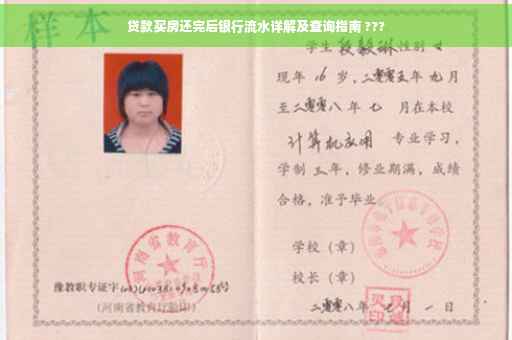 贷款买房还完后银行流水详解及查询指南 ???
样本
学生段毅琳性别女
现年16岁,二零零五年九月
至二零零八年七月在本校
计算机应用 专业学习,
学制三年,修业期满,成绩
合格,准予毕业。
学校(章)
校长(章)
二零零八年 月一日
河南省教育厅
豫教职专证字
(河南省教育厅验印)